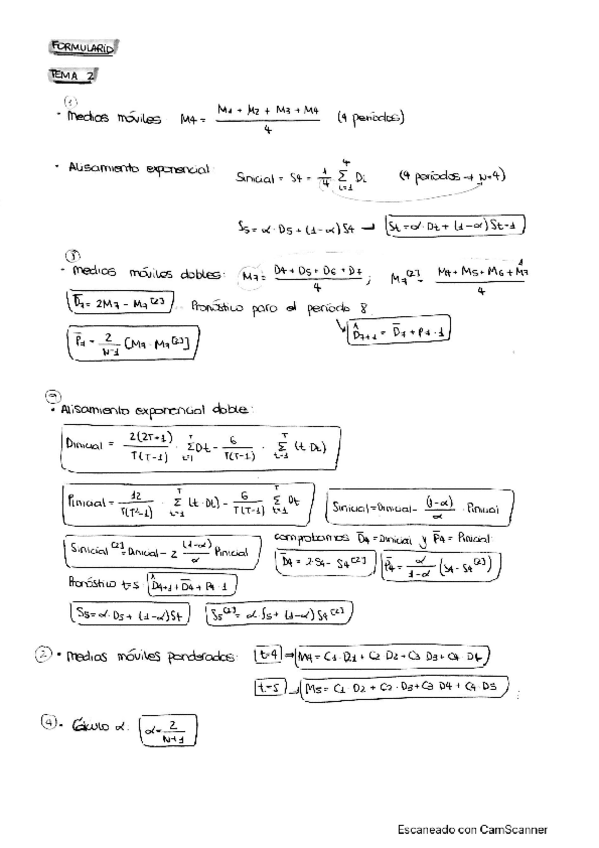 FORMULARIO
TEMA 2
(1)
· Medias móviles M4 = (M1 + M2 + M3 + M4) / 4 (4 períodos)
· Alisamiento exponencial: Sinicial = S4 = 1/4 Σ(t=1→4) Dt (4 períodos → N=4)
S5 = α · D5 + (1-α) S4 → St = α · Dt + (1-α) St-1
· Medias móviles dobles: M7 = (D4 + D5 + D6 + D7) / 4 ; M7^[2] = (M4 + M5 + M6 + M7) / 4
D̄7 = 2M7 - M7^[2] Pronóstico para el período 8
P̄7 = 2/(N-1) [M7 - M7^[2]] D̂7+1 = D̄7 + P7 · 1
· Alisamiento exponencial doble:
Dinicial = 2(2T+1)/T(T-1) · Σ(t=1→T) Dt - 6/T(T-1) · Σ(t=1→T) (t · Dt)
Pinicial = 12/T(T²-1) · Σ(t=1→T) (t · Dt) - 6/T(T-1) Σ(t=1→T) Dt Sinicial = Dinicial - (1-α)/α · Pinicial
Sinicial^[2] = Dinicial - 2 (1-α)/α Pinicial comprobamos D̄4 = Dinicial y P̄4 = Pinicial:
D̄4 = 2 · S4 - S4^[2] P̄4 = α/(1-α) (S4 - S4^[2])
Pronóstico t=5 D̂4+1 = D̄4 + P4 · 1
S5 = α · D5 + (1-α) S4 S5^[2] = α · S5 + (1-α) S4^[2]
(2) · Medias móviles ponderadas: t=4 ⇒ M4 = C1 · D1 + C2 D2 + C3 D3 + C4 D4
t=5 → M5 = C1 · D2 + C2 · D3 + C3 D4 + C4 · D5
(4) · Cálculo α: α = 2/(N+1)
Escaneado con CamScanner